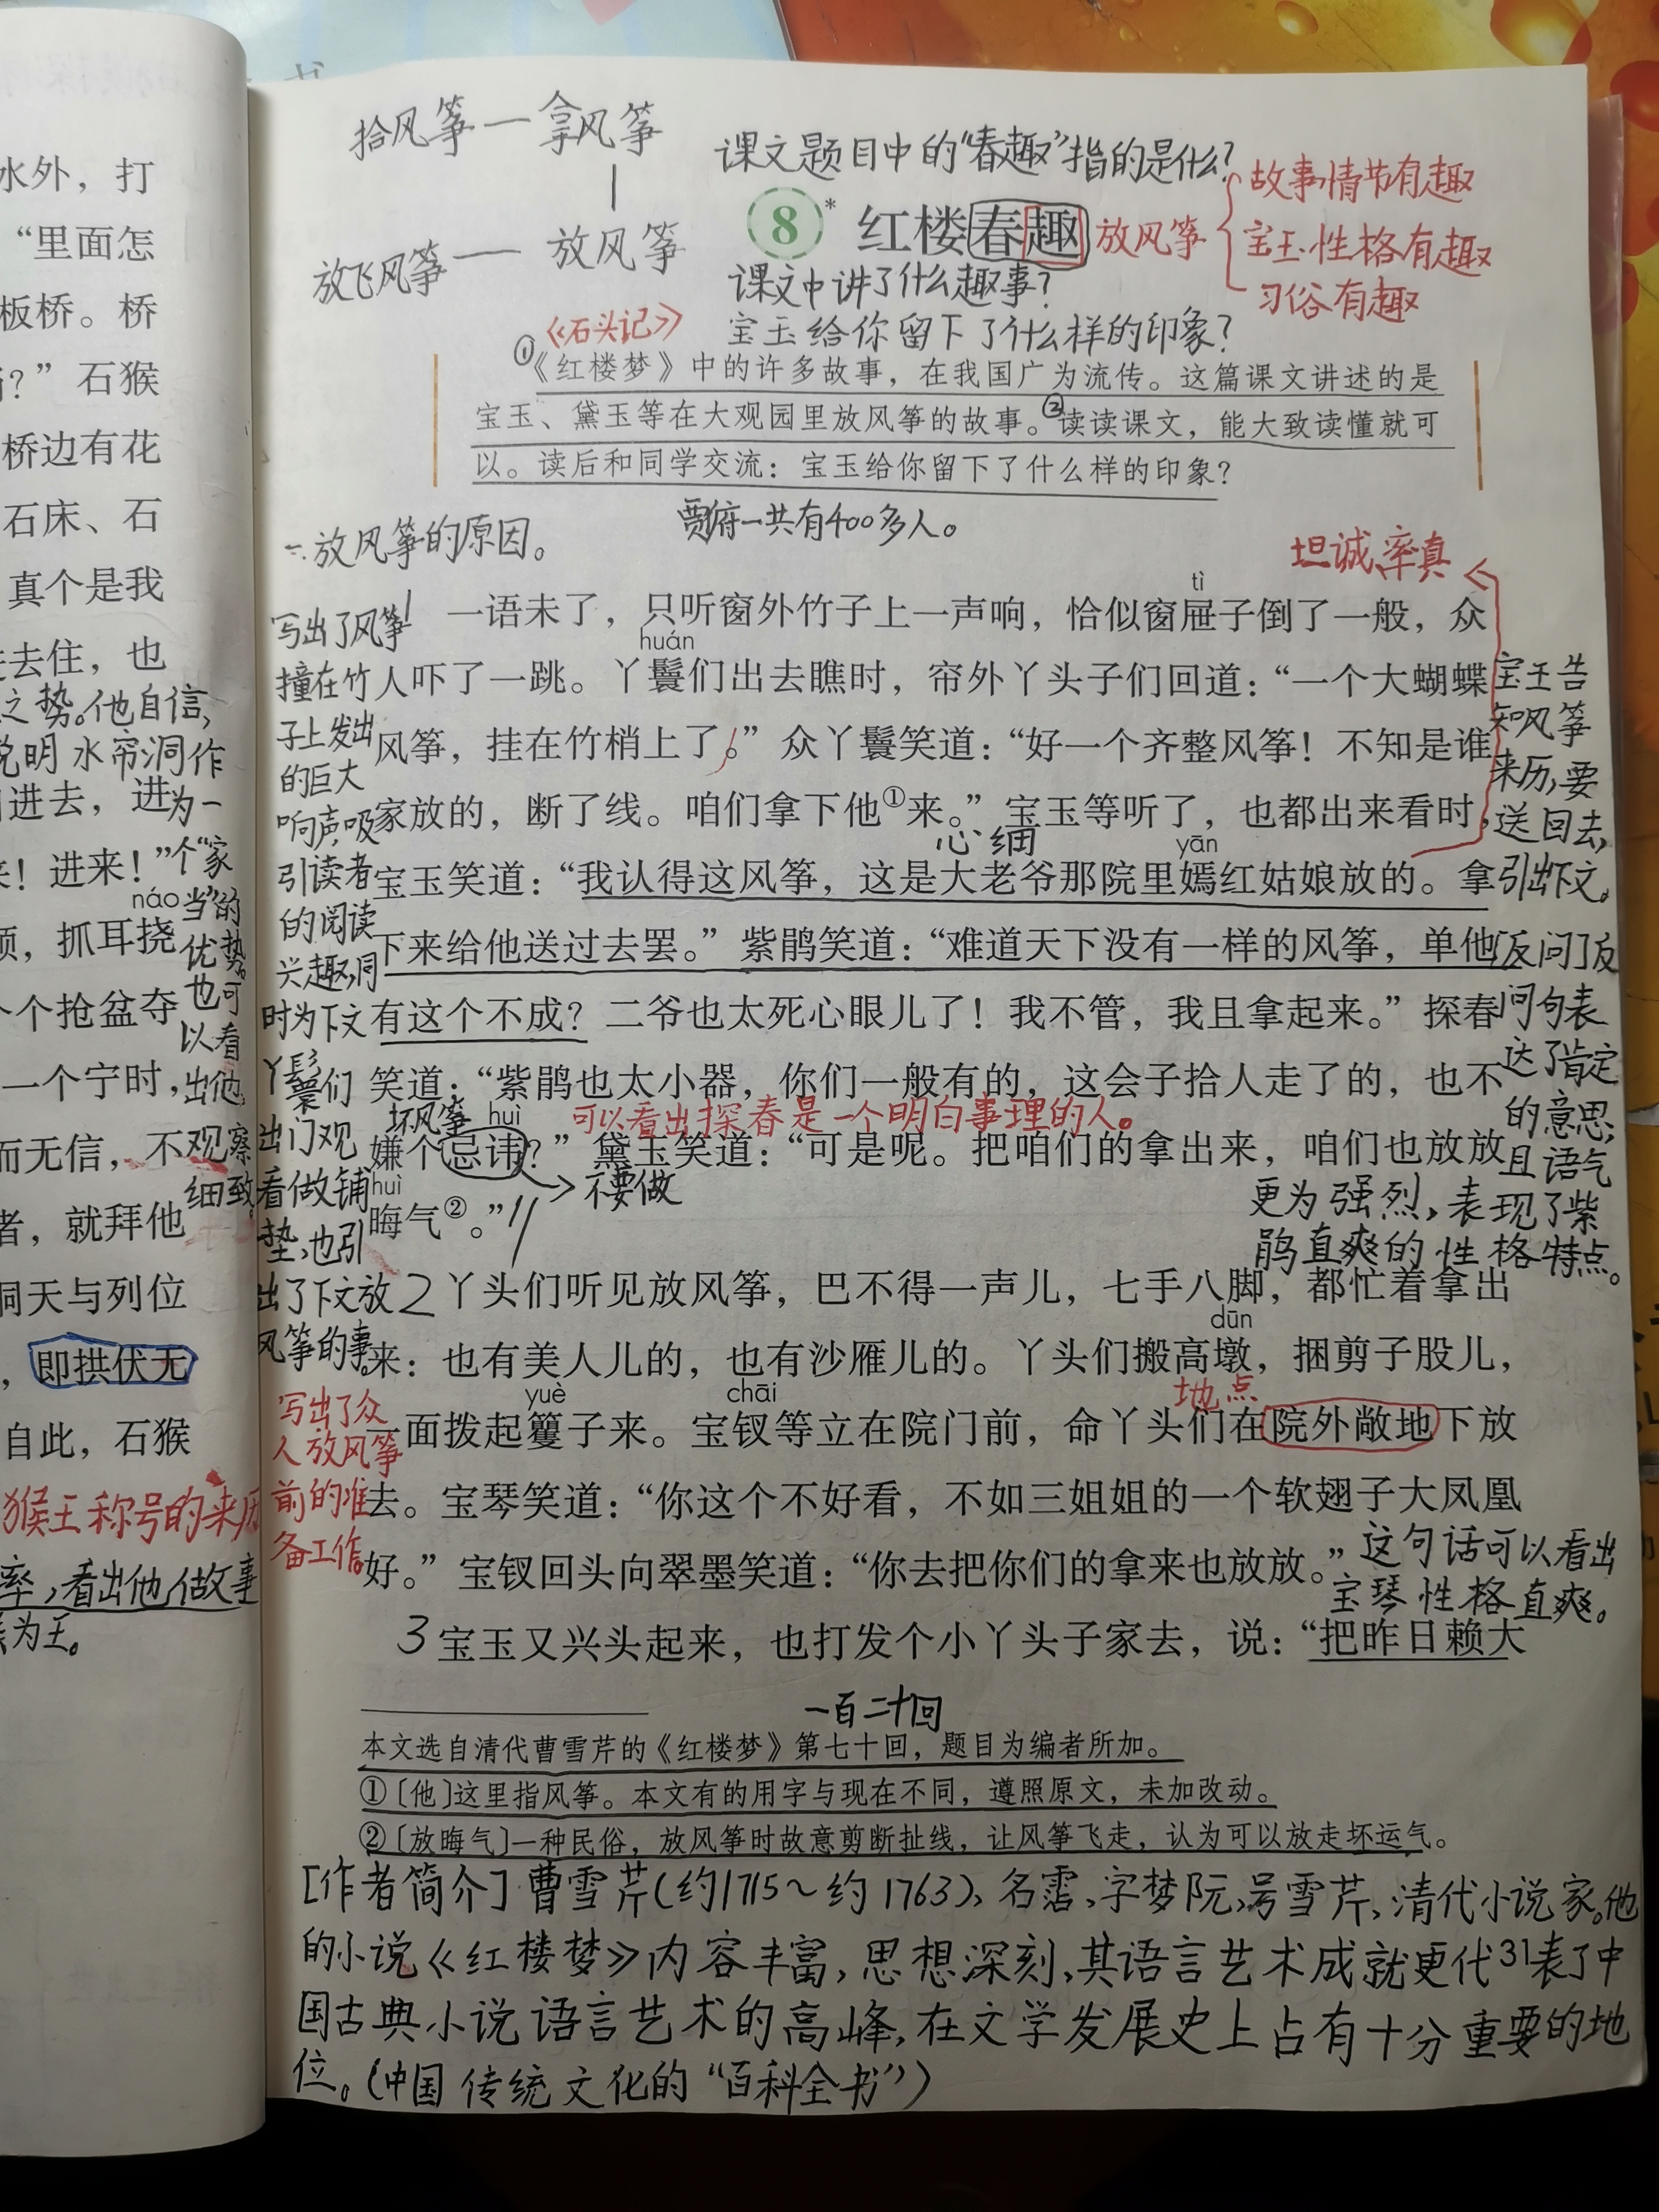 水外，打
“里面怎
板桥。桥
？”石猴
桥边有花
石床、石
真个是我
去住，也
之势。他自信，
说明水帘洞作
进去，进为一
来！进来！”个“家
náo
当”的
顽，抓耳挠
优势。
也可
个个抢盆夺
以看
一个宁时，出他
而无信，不观察
细致。
者，就拜他
洞天与列位
，即拱伏无
自此，石猴
猴王称号的来历
率，看出他做事
为王。
拾风筝—拿风筝
放飞风筝—放风筝
课文题目中的“春趣”指的是什么？
8* 红楼春趣
放风筝
故事情节有趣
宝玉性格有趣
习俗有趣
课文中讲了什么趣事？
《石头记》
宝玉给你留下了什么样的印象？
①《红楼梦》中的许多故事，在我国广为流传。这篇课文讲述的是
宝玉、黛玉等在大观园里放风筝的故事。②读读课文，能大致读懂就可
以。读后和同学交流：宝玉给你留下了什么样的印象？
贾府一共有400多人。
一.放风筝的原因。
坦诚、率真
tì
1 一语未了，只听窗外竹子上一声响，恰似窗屉子倒了一般，众
huán
人吓了一跳。丫鬟们出去瞧时，帘外丫头子们回道：“一个大蝴蝶
风筝，挂在竹梢上了。”众丫鬟笑道：“好一个齐整风筝！不知是谁
家放的，断了线。咱们拿下他①来。”宝玉等听了，也都出来看时，
心细
yān
宝玉笑道：“我认得这风筝，这是大老爷那院里嫣红姑娘放的。拿
下来给他送过去罢。”紫鹃笑道：“难道天下没有一样的风筝，单他
有这个不成？二爷也太死心眼儿了！我不管，我且拿起来。”探春
笑道：“紫鹃也太小器，你们一般有的，这会子拾人走了的，也不
坏风筝 huì 可以看出探春是一个明白事理的人。
嫌个忌讳？”黛玉笑道：“可是呢。把咱们的拿出来，咱们也放放
不要做
huì
晦气②。”
写出了风筝
撞在竹
子上发出
的巨大
响声，吸
引读者
的阅读
兴趣，同
时为下文
丫鬟们
出门观
看做铺
垫，也引
出了下文放
风筝的事。
宝玉告
知风筝
来历，要
送回去，
引出下文。
[反问]反
问句表
达了肯定
的意思，
且语气
更为强烈，表现了紫
鹃直爽的性格特点。
2 丫头们听见放风筝，巴不得一声儿，七手八脚，都忙着拿出
dūn
来：也有美人儿的，也有沙雁儿的。丫头们搬高墩，捆剪子股儿，
yuè chāi 地点
一面拨起籰子来。宝钗等立在院门前，命丫头们在院外敞地下放
去。宝琴笑道：“你这个不好看，不如三姐姐的一个软翅子大凤凰
好。”宝钗回头向翠墨笑道：“你去把你们的拿来也放放。”
写出了众
人放风筝
前的准
备工作。
这句话可以看出
宝琴性格直爽。
3 宝玉又兴头起来，也打发个小丫头子家去，说：“把昨日赖大
一百二十回
本文选自清代曹雪芹的《红楼梦》第七十回，题目为编者所加。
①〔他〕这里指风筝。本文有的用字与现在不同，遵照原文，未加改动。
②〔放晦气〕一种民俗，放风筝时故意剪断扯线，让风筝飞走，认为可以放走坏运气。
[作者简介]曹雪芹(约1715～约1763)，名霑，字梦阮，号雪芹，清代小说家。他
的小说《红楼梦》内容丰富，思想深刻，其语言艺术成就更代表了中
31
国古典小说语言艺术的高峰，在文学发展史上占有十分重要的地
位。(中国传统文化的“百科全书”)